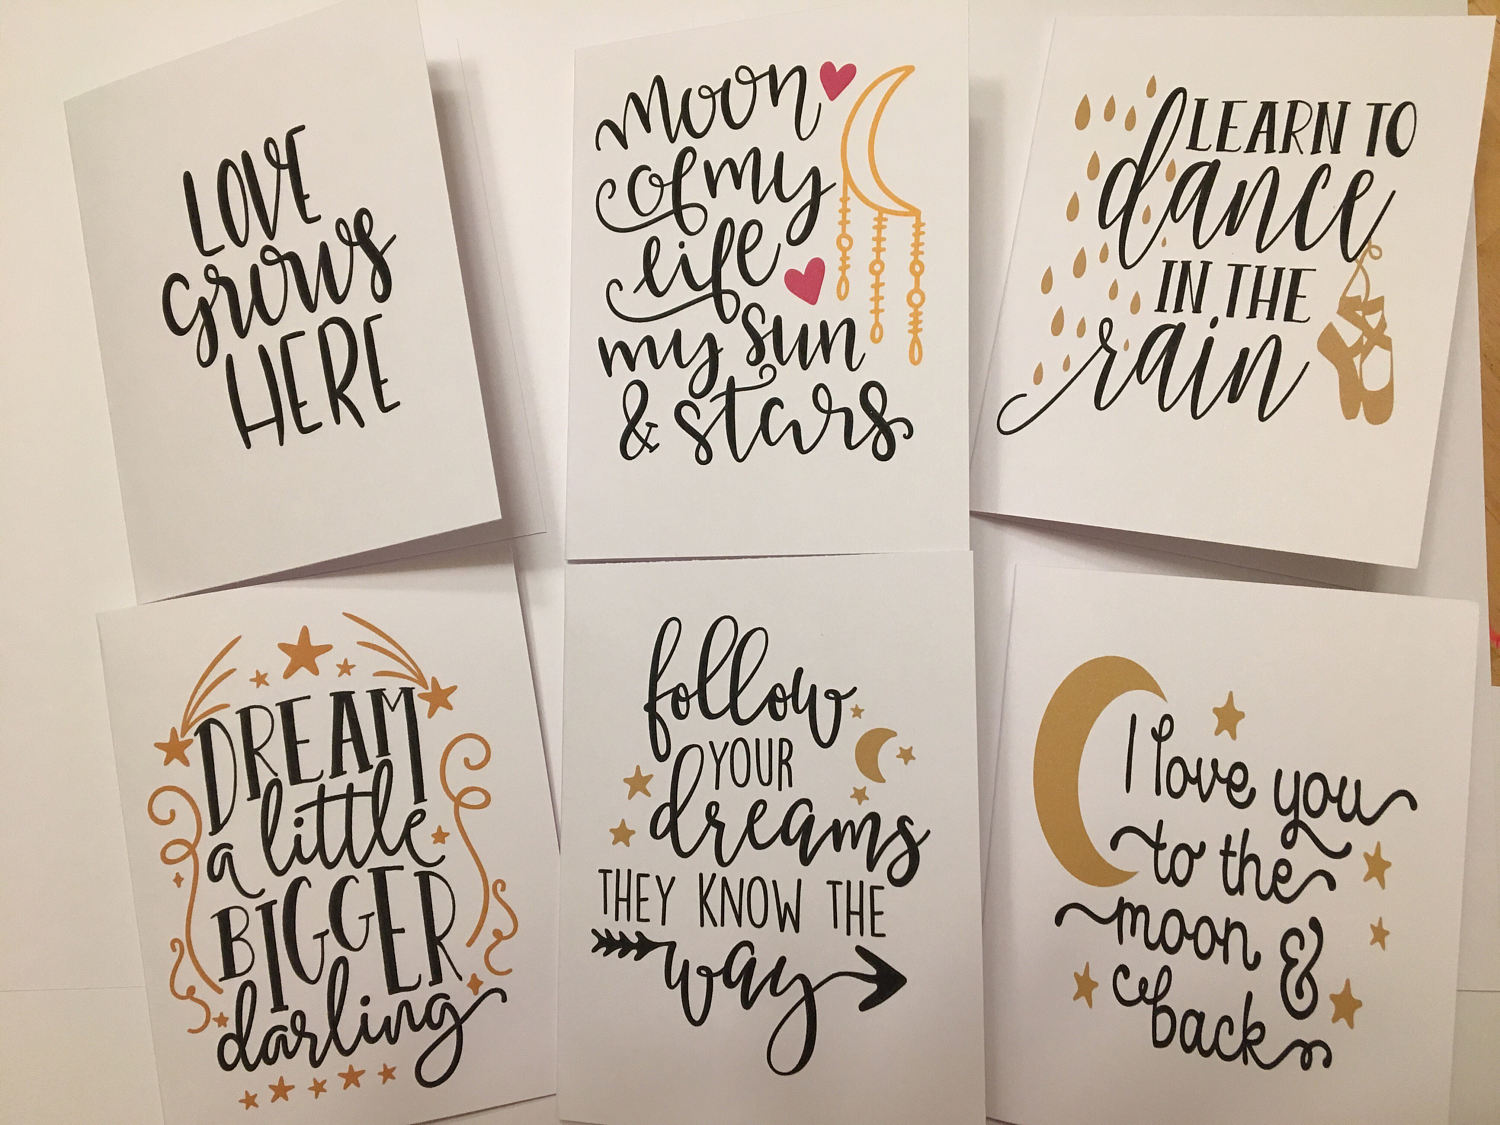 LOVE
grows
HERE
moon
of my
life
my sun
& stars
LEARN TO
dance
IN THE
rain
DREAM
a little
BIGGER
darling
follow
YOUR
dreams
THEY KNOW THE
way
I love you
to the
moon &
back